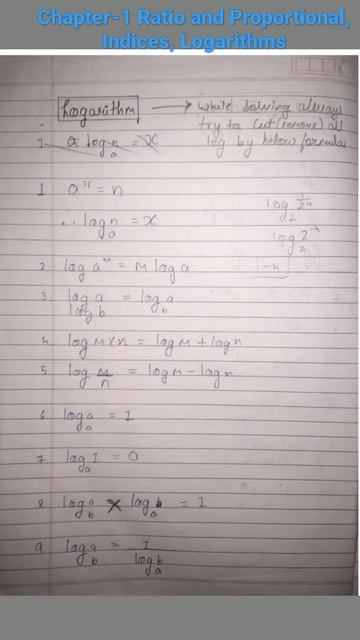 Chapter-1 Ratio and Proportional,
Indices, Logarithms
Logarithm → while solving always
try to cut (remove) all
log by below formula
1. a log n a = x
1 aˣ = n
∴ log n a = x
log 1/2⁴ 2
log 2⁻⁴ 2
-4
2 log aᵐ = M log a
3. log a / log b = log a b
4. log M x n = log M + log n
5 log M/n = log M - log n
6 log a a = 1
7 log 1 a = 0
8 log a b x log b a = 1
9 log a b = 1 / log b a